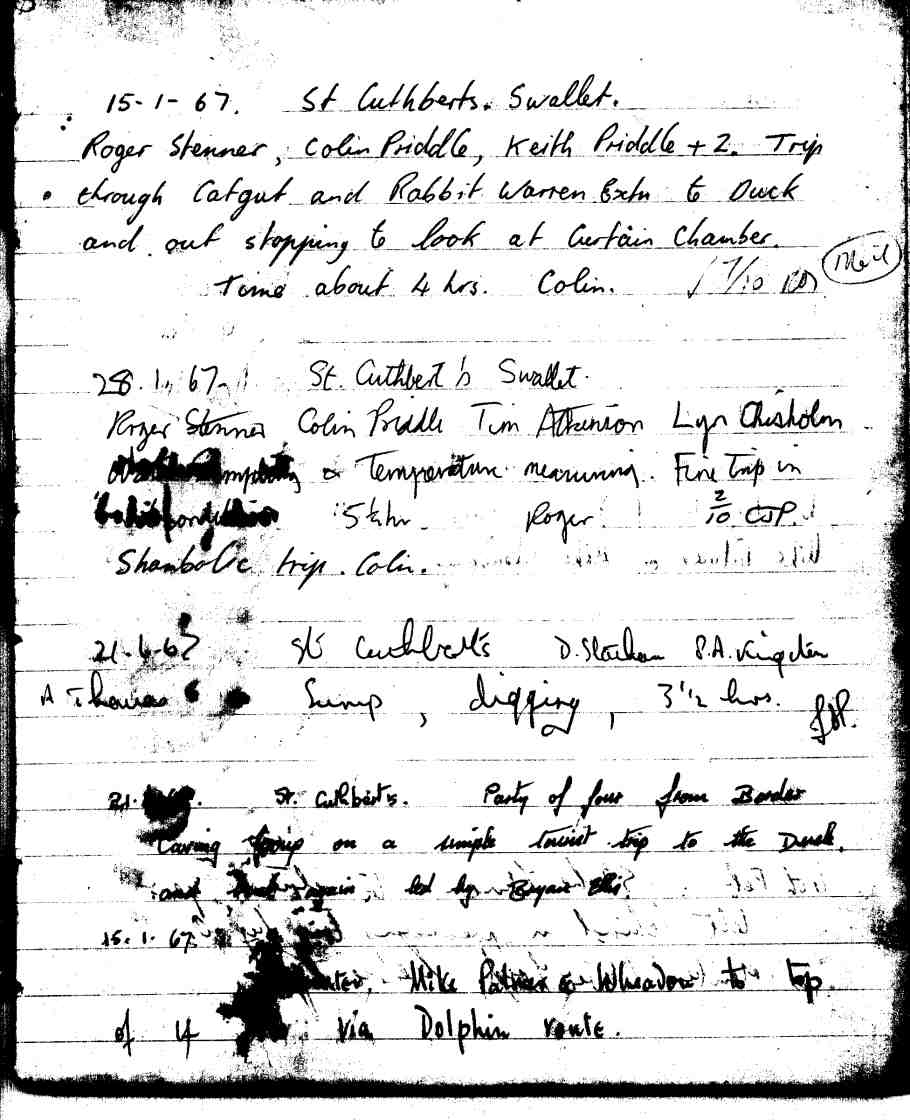 15-1-67. St Cuthberts. Swallet.
Roger Stenner, Colin Priddle, Keith Priddle + 2. Trip
through Catgut and Rabbit Warren Extn to Duck
and out stopping to look at Curtain Chamber.
Time about 4 hrs. Colin. 7/10
28.1.67. St. Cuthbert's Swallet.
Roger Stenner Colin Priddle Tim Atkinson Lyn Chisholm
& Temperature measuring. Fine trip in
5½hr Roger. 2/10 CJP.
Shambolic trip. Colin.
St Cuthbert's P.A. Kingston
A Thomas Sump, digging, 3 1/2 hrs.
21. St. Cuthbert's. Party of four from Border
Caving Group on a simple tourist trip to the Duck,
and again, led by Bryan Ellis
15.1.67
Mike Palmer & Wheadon to top
of via Dolphin route.